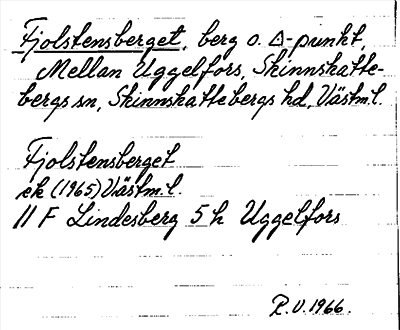 Fjolstensberget, berg o. △-punkt,
Mellan Uggelfors, Skinnskatte-
bergs sn, Skinnskattebergs hd, Västm.l.
Fjolstensberget
ek (1965) Västm.l.
11 F Lindesberg 5 h Uggelfors
R.U. 1966.